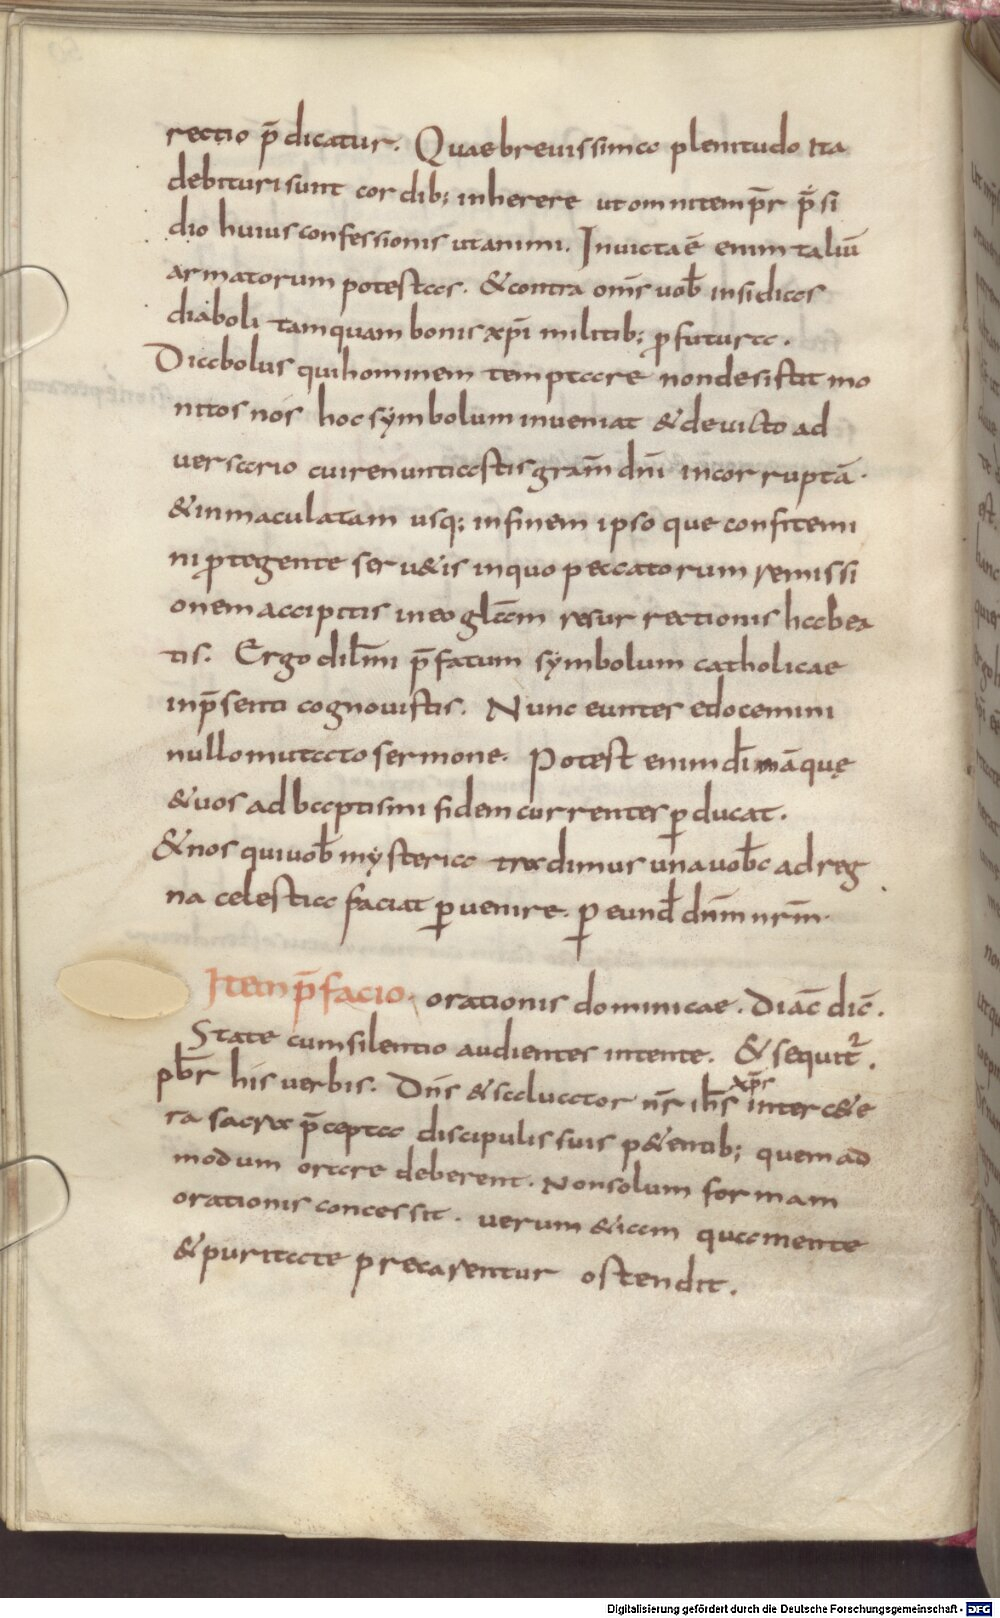 rectio p̄dicatur. Quae breuissima plenitudo ita
debituri sunt cordib; inherere ut omni temp̄r p̄si
dio huius confessionis utamini. Inuicta ē enim taliū
armatorum potestas. & contra om̄s uob̄ insidias
diaboli tamquam bonis xp̄i militib; ꝓfutura.
Diabolus qui hominem temptare non desistit mo
nitos nos hoc symbolum inueniat & deuicto ad
uersario cui renuntiastis gram̄ dn̄i incorruptā.
& inmaculatam usq; in finem ipso que confitemi
ni ꝓtegente seru&is in quo peccatorum remissi
onem accipitis in eo gl̄am resurrectionis habea
tis. Ergo dil̄mi p̄fatum symbolum catholicae
in p̄senti cognouistis. Nunc euntes edocemini
nullo mutato sermone. Potest enim dī mā quę
& uos ad baptismi fidem currentes ꝑducat.
& nos qui uob̄ mysteria tradimus una uob̄c ad reg
na celestia faciat ꝑuenire. ꝑ eund̄ dn̄m nr̄m.
Item p̄facio. orationis dominicae. Diac̄ dic̄.
State cum silentio audientes intente. & sequit̄.
pb̄r his uerbis. Dn̄s & saluator nr̄ ih̄s xp̄s inter c&e
ra sacra p̄cepta discipulis suis p&entib; quem ad
modum orare deberent. Non solum formam
orationis concessit. uerum &iam qua mente
& puritate precarentur ostendit.
Digitalisierung gefördert durch die Deutsche Forschungsgemeinschaft - DFG